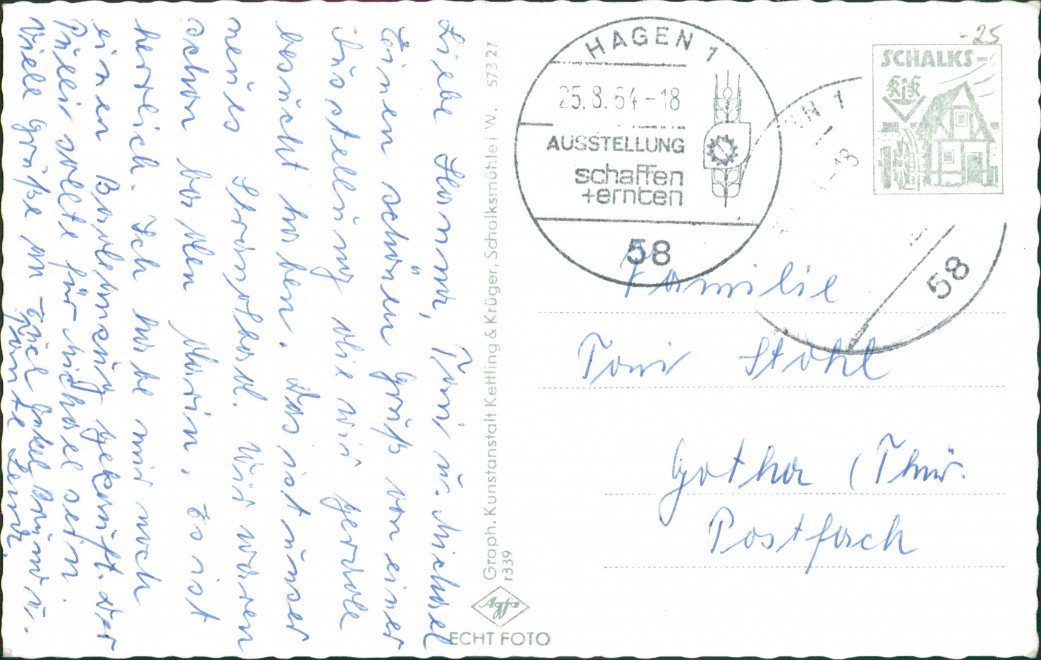 Liebe Hanna, Toni u. Michael
Einen schönen Gruß von einer
Ausstellung die wir gerade
besucht haben. Das ist unser
neues Strandbad. Wir waren
schon baden darin. Es ist
herrlich. Ich habe mir noch
einen Badeanzug gekauft. Der
Pulli sollte für Michael sein.
Viele Grüße an Euch Onkel u.
Tante Leni
Graph. Kunstanstalt Kettling & Krüger, Schalksmühle i W. 573 27
r339
Agfa
ECHT FOTO
HAGEN 1
25.8.64-18
AUSSTELLUNG
schaffen
+ernten
58
N 1
-18
58
-25
SCHALKS-
KJK
Familie
Toni Stohl
Gotha (Thür.
Postfach